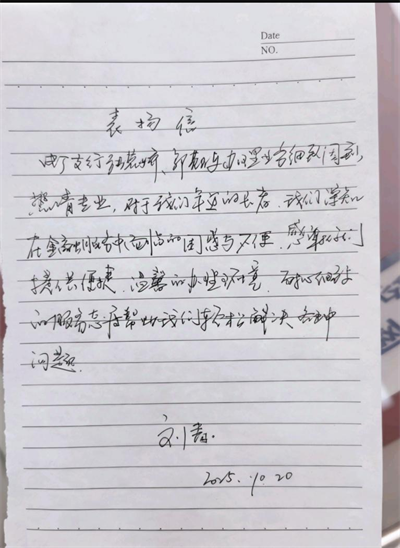 Date
NO.
表扬信
支行 办理业务细致周到,
热情专业,对于我们年迈的长者,我们深知
在金融服务中面临的困惑与不便,感谢你们
提供便捷、温馨的办理环境,耐心细致
的服务态度帮助我们轻松解决各种
问题。
刘
2025.10.20